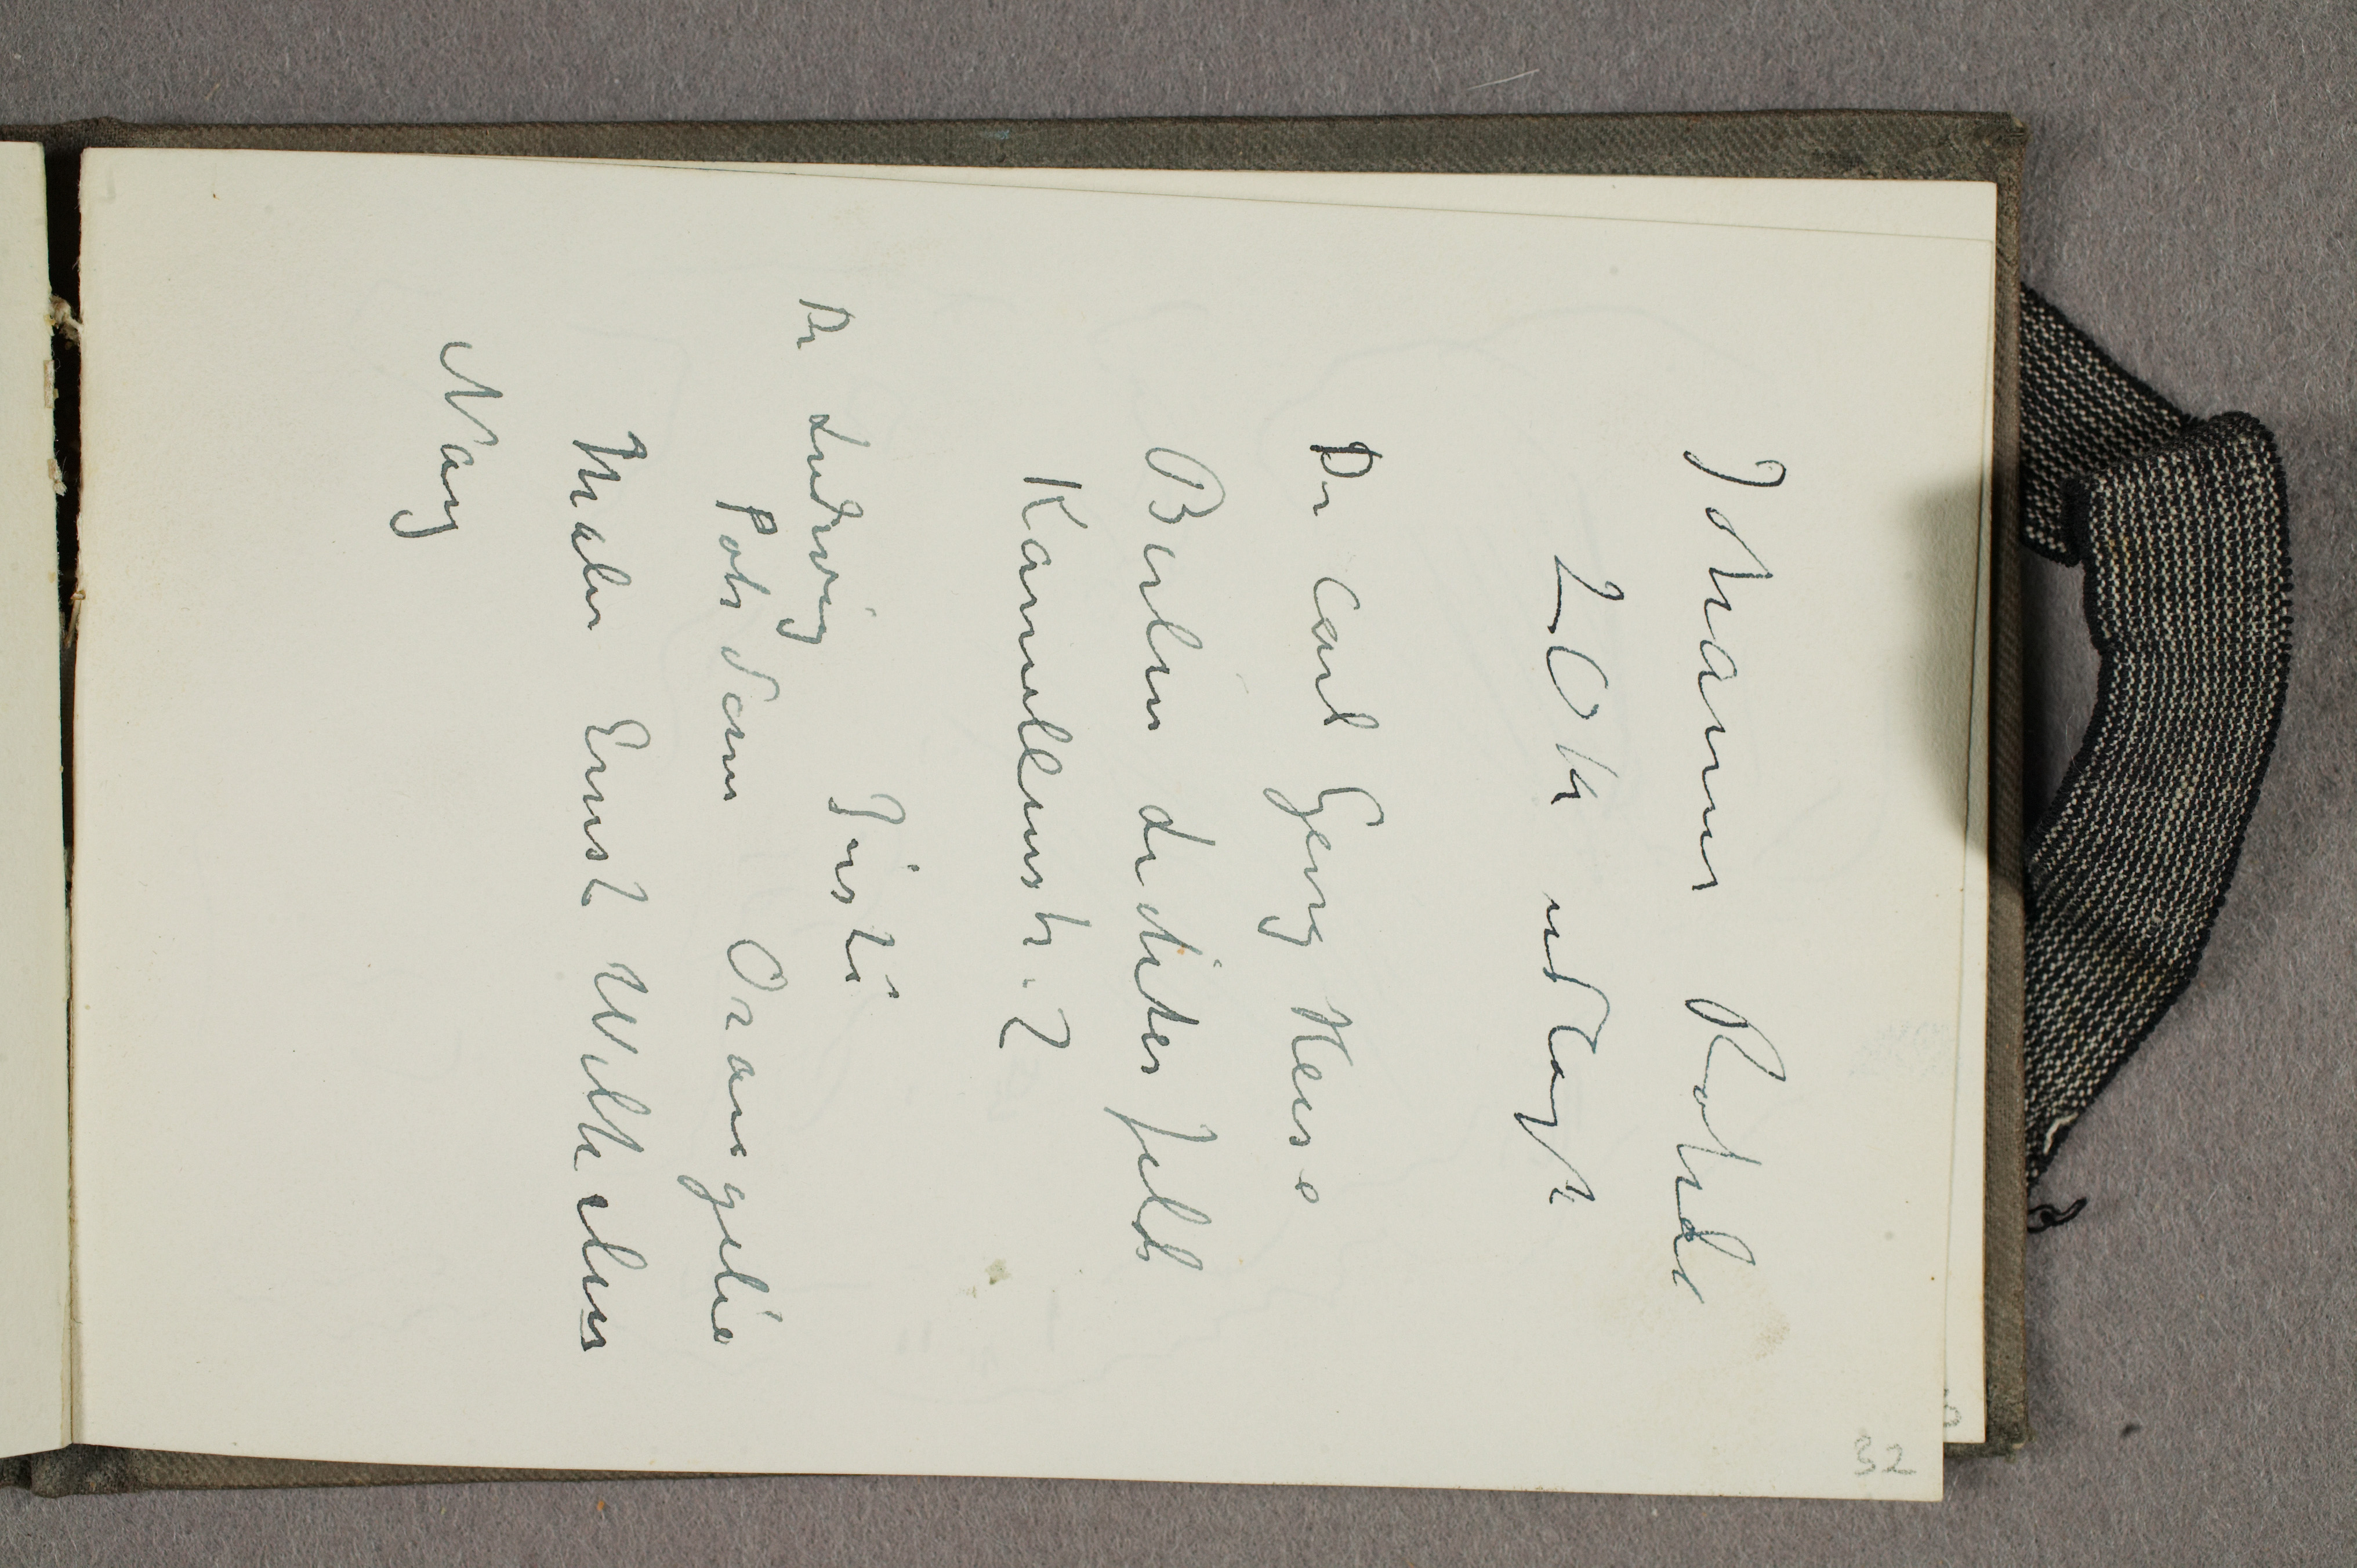 Johannes Rohde
20 Kr udlagt
Dr Carl Georg Heise
Berlin Lichterfelde
Kamillenstr. 2
Dr Ludwig Justi
Potsdam Orangerie
Maler Ernst Wilhelm
Nay
32